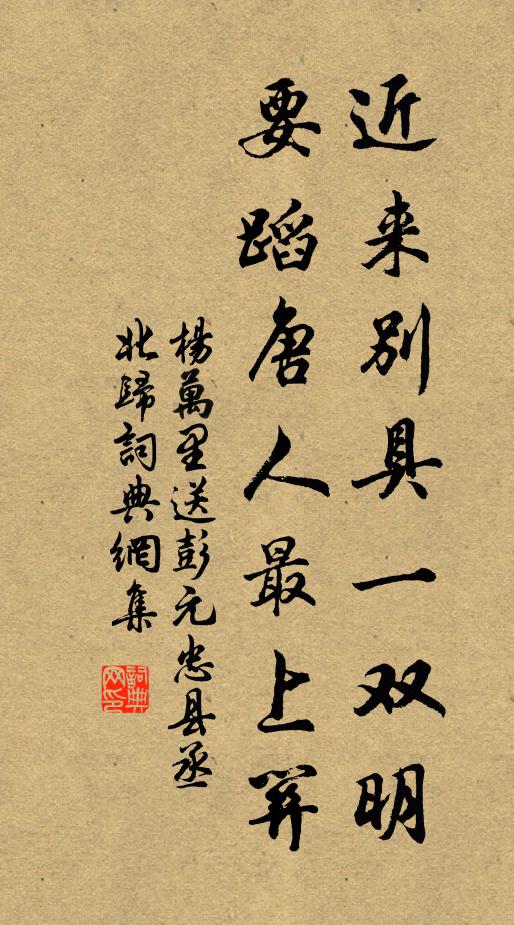 近来别具一双明
要蹈唐人最上关
楊萬里送彭元忠县丞
北歸詞典網集
詞典
网印